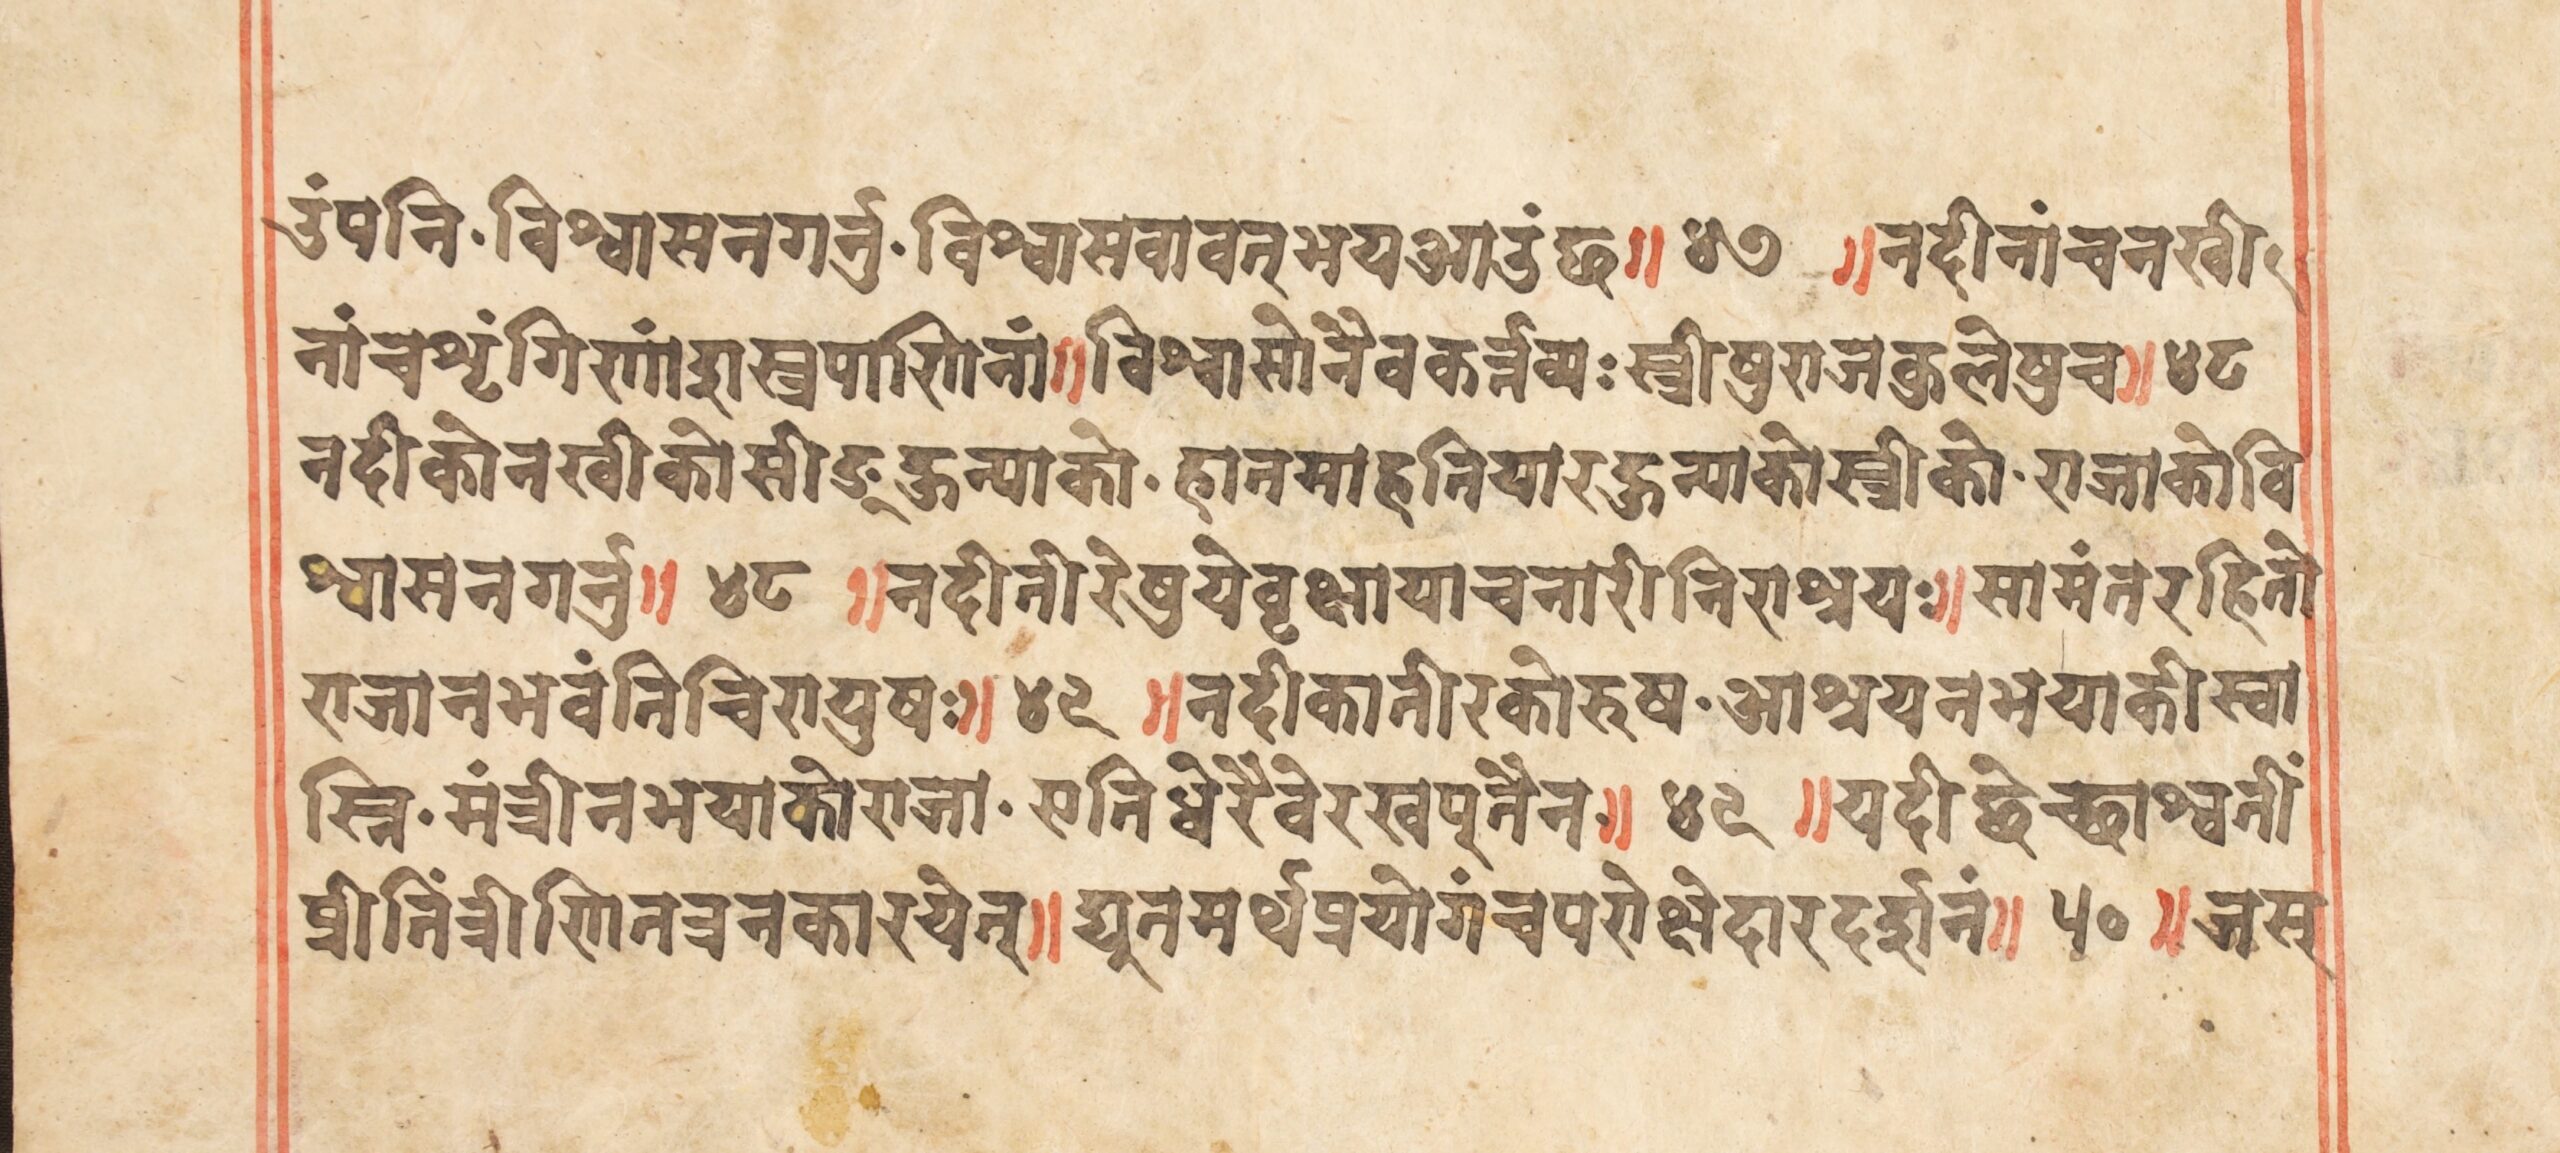 उंपनि·विश्वासनगर्नु·विश्वासवावत्भयआउंछ॥ ४७ ॥नदीनांचनखी
नांचशृंगिणांशस्त्रपाणिनां॥विश्वासोनैवकर्त्तव्यःस्त्रीषुराजकुलेषुच॥४८
नदीकोनखीकोसीङ्हुन्याको·हातमाहतियारहुन्याकोस्त्रीको·राजाकोवि
श्वासनगर्नु॥ ४८ ॥नदीतीरेषुयेवृक्षायाचनारीनिराश्रयः॥सामंतरहितो
राजानभवंतिचिरायुषः॥४९ ॥नदीकातीरकोरुष·आश्रयनभयाकीस्वा
स्नि·मंत्रीनभयाकोराजा·एतिधेरैवेरखप्तैन॥ ४९ ॥यदीछेच्छाश्वतीं
प्रीतिंत्रीणितत्रनकारयेत्॥द्यूतमर्थप्रयोगंचपरोक्षेदारदर्शनं॥ ५० ॥जस्